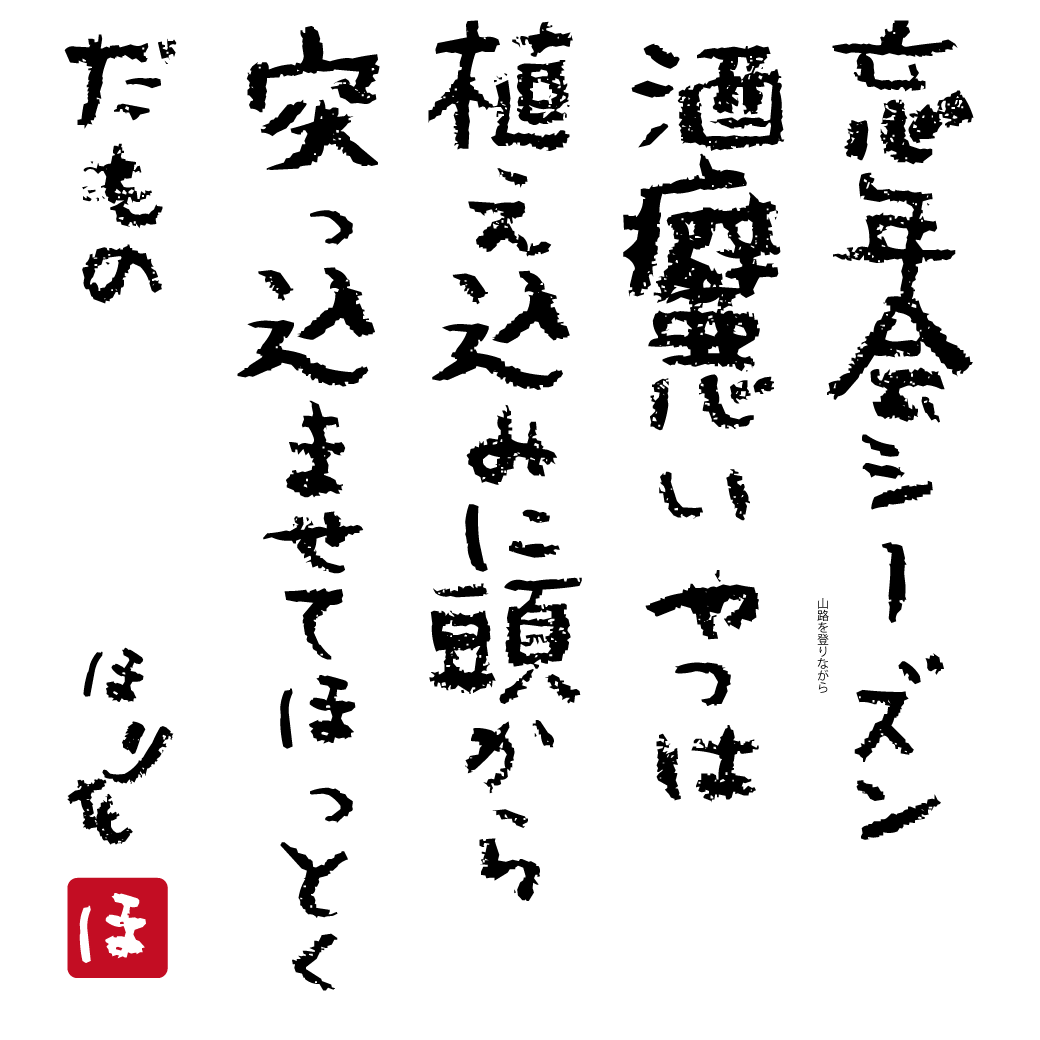 忘年会シーズン
山路を登りながら
酒癖悪いやつは
植え込みに頭から
突っ込ませてほっとく
だもの
ほりも
ほ